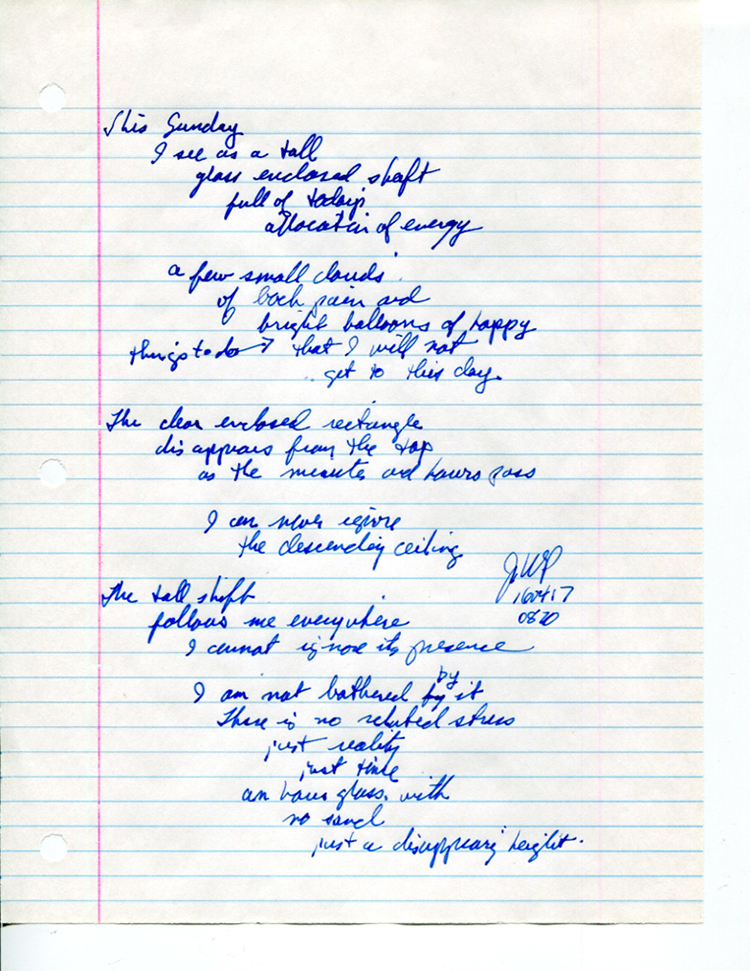 This Sunday
I see as a tall
glass enclosed shaft
full of today's
allocation of energy
a few small clouds
of both pain and
bright balloons of happy
things to do → that I will not
get to this day.
The clear enclosed rectangle
disappears from the top
as the minutes and hours pass
I can never ignore
the descending ceiling
JWP
160417
0820
The tall shaft
follows me everywhere
I cannot ignore its presence
I am not bothered by it
There is no related stress
just reality
just time
an hour glass with
no sand
just a disappearing height.